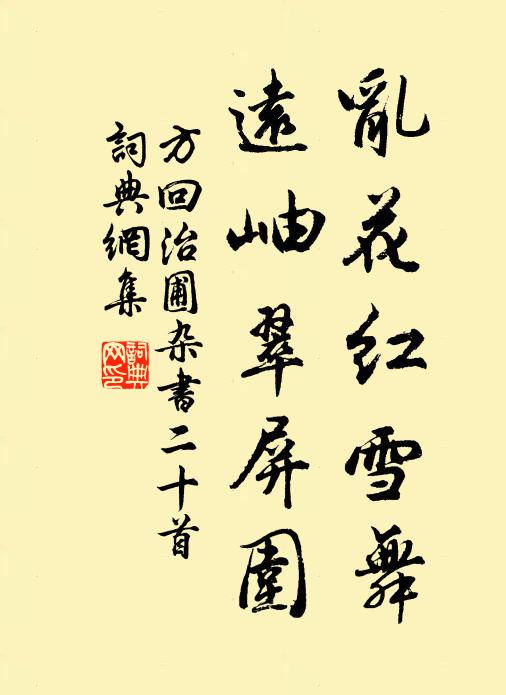 亂花紅雪舞
遠岫翠屏圍
方回治圃杂書二十首
詞典網集
詞典網印